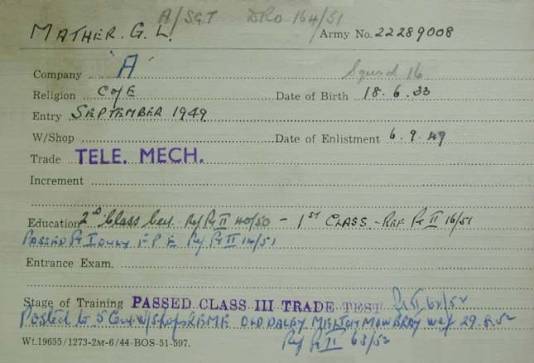 A/SGT DRO 164/51
MATHER. G. L. Army No. 22289008
Company "A" Squad 16
Religion C of E Date of Birth 18.6.33
Entry SEPTEMBER 1949
W/Shop Date of Enlistment 6.9.49
Trade TELE. MECH.
Increment
Education 2nd Class Ref Pt II 40/50 - 1ST CLASS - REF Pt II 16/51
PASSED Pt I Ref Pt II 14/51
Entrance Exam.
Stage of Training PASSED CLASS III TRADE TEST Pt II 62/52
Posted to 5 W/Shop REME OLD DALBY MELTON MOWBRAY wef 29.8.52
Ref Pt II 63/52
Wt.19655/1273-2M-6/44-BOS-51-597.